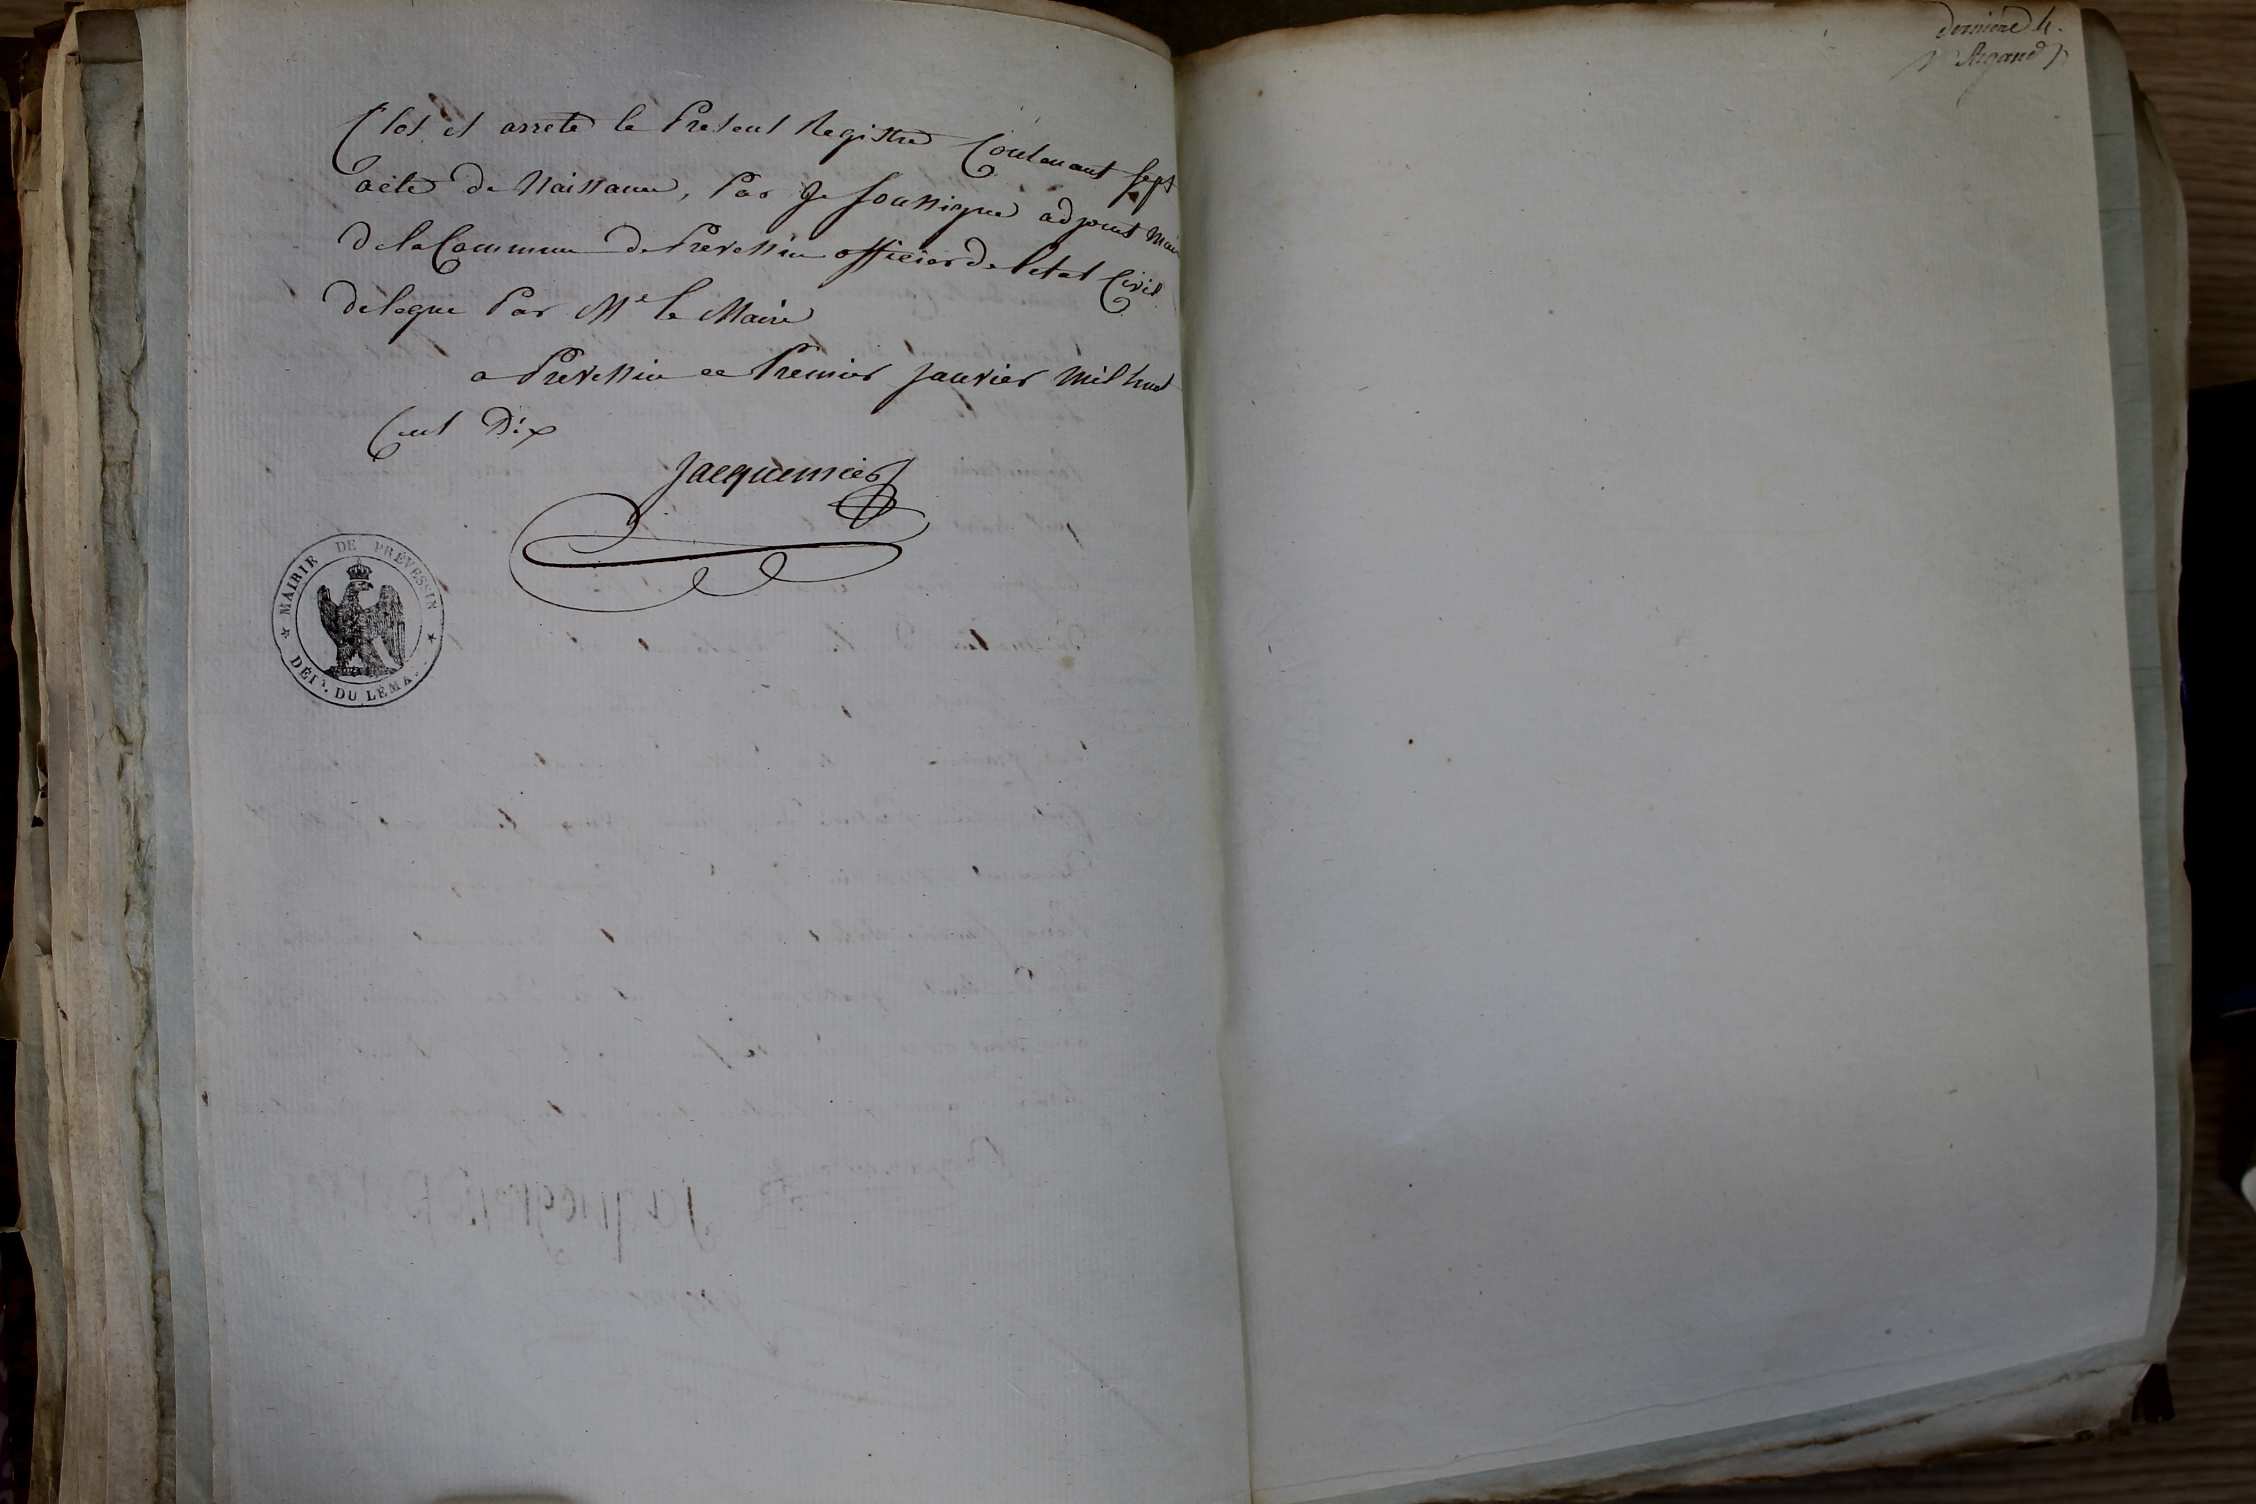 Clos et arreté le Present Registre Contenant Sept
acte de Naissance, Par Je soussigné adjoint Maire
de la Commune de Prevessin officier de l'etat Civil
delegué Par Mr le Maire
a Prevessin ce Premier janvier mil huit
Cent Dix
Jacquemier
MAIRIE DE PRÉVESSIN
DÉPT. DU LÉMAN
dernière 4.
Argand